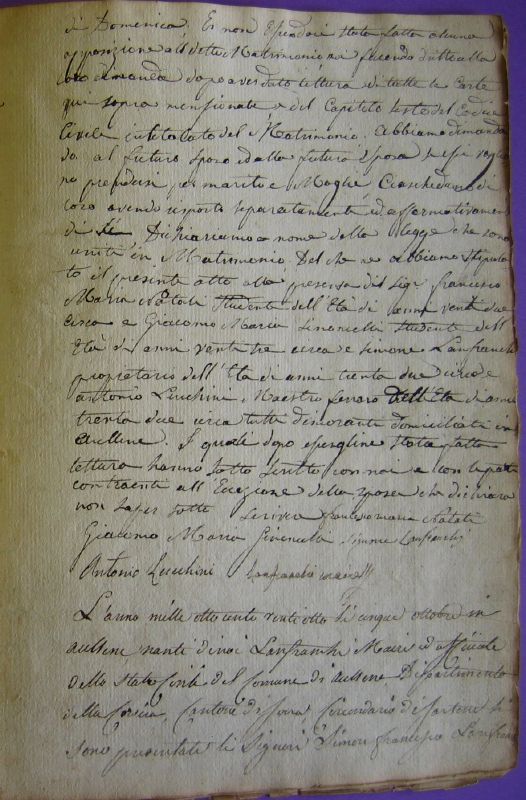 di Domenica. Et non essendoci stata fatta alcuna
opposizione al detto Matrimonio noi facendo dritto alla
loro domanda dopo aver dato lettura di tutte le carte
qui sopra mensionate e del Capitolo sesto del Codice
Civile intitolato del Matrimonio. Abbiamo dimanda
to al futuro sposo ed alla futura sposa se essi voglio
no prendersi per marito e Moglie Ciascheduno di
loro avendo risposto separatamente ed affermativamen
di Dichiariamo a nome della legge che sono
uniti in Matrimonio Del che ne abbiamo stipula
to il presente atto alla presenza del Sigr francesco
Maria Natali studente dell'Età di anni venti due
circa e Giacomo Maria studente dell
Età di anni venti tre circa e simone Lanfranchi
proprietario dell'Età di anni trenta due circa e
antonio Lucchini Maestro ferraro Dell'Età di anni
trenta due circa tutti dimoranti domiciliati in
aullene. I quali dopo essergline stata fatta
lettura hanno sotto scritto con noi e con le parti
contraenti all'Eccezione della sposa che dichiara
non saper sotto scrivere francesco maria Natali
Giacomo Maria Simone Lanfranchi
Antonio Lucchini Lanfranchi
L'anno mille otto cento venti otto li cinque ottobre in
aullene nanti di noi Lanfranchi Maire ed officiale
dello Stato Civile del Comune di aullene Dipartimento
della Corsica, Cantone di Serra, Circondario di Sartene si
sono presentati li Signori Simon francesco Lanfranchi